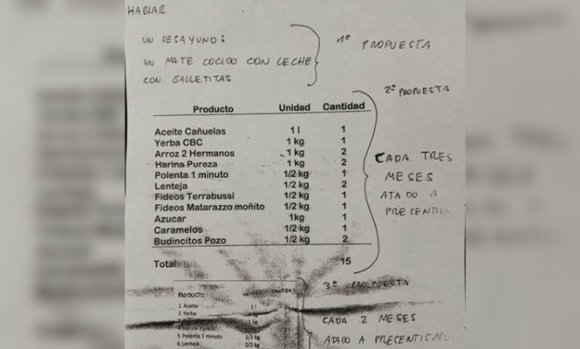 HABLAR
UN DESAYUNO:
UN MATE COCIDO CON LECHE
CON GALLETITAS
1º PROPUESTA
2º PROPUESTA
Producto Unidad Cantidad
Aceite Cañuelas 1 l 1
Yerba CBC 1 kg 1
Arroz 2 Hermanos 1 kg 2
Harina Pureza 1 kg 2
Polenta 1 minuto 1/2 kg 1
Lenteja 1/2 kg 2
Fideos Terrabussi 1/2 kg 1
Fideos Matarazzo moñito 1/2 kg 1
Azucar 1kg 1
Caramelos 1/2 kg 1
Budincitos Pozo 1/2 kg 2
Total 15
CADA TRES
MESES
ATADO A
PRESENTIS
3º PROPUESTA
PRODUCTO CANTIDAD
1 Aceite
2 Yerba
5 Polenta 1 minuto 1/2 kg
6 Lenteja 1/2
CADA 2 MESES
ATADO A PRESENTISM